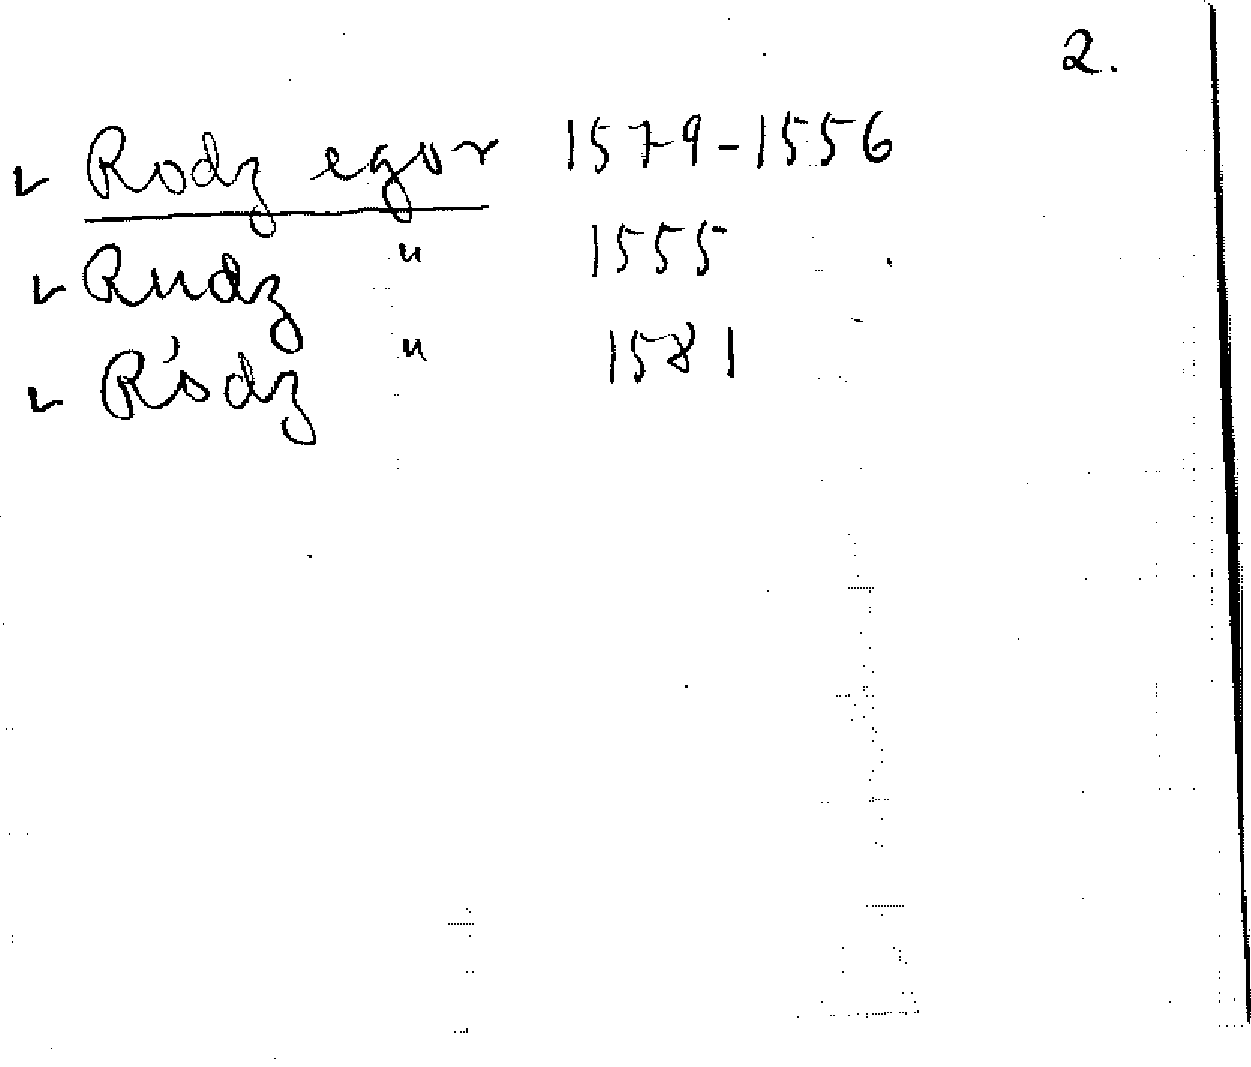 2.
✓ Rodz egor 1579-1556
✓ Rudz " 1555
✓ Ródz " 1581